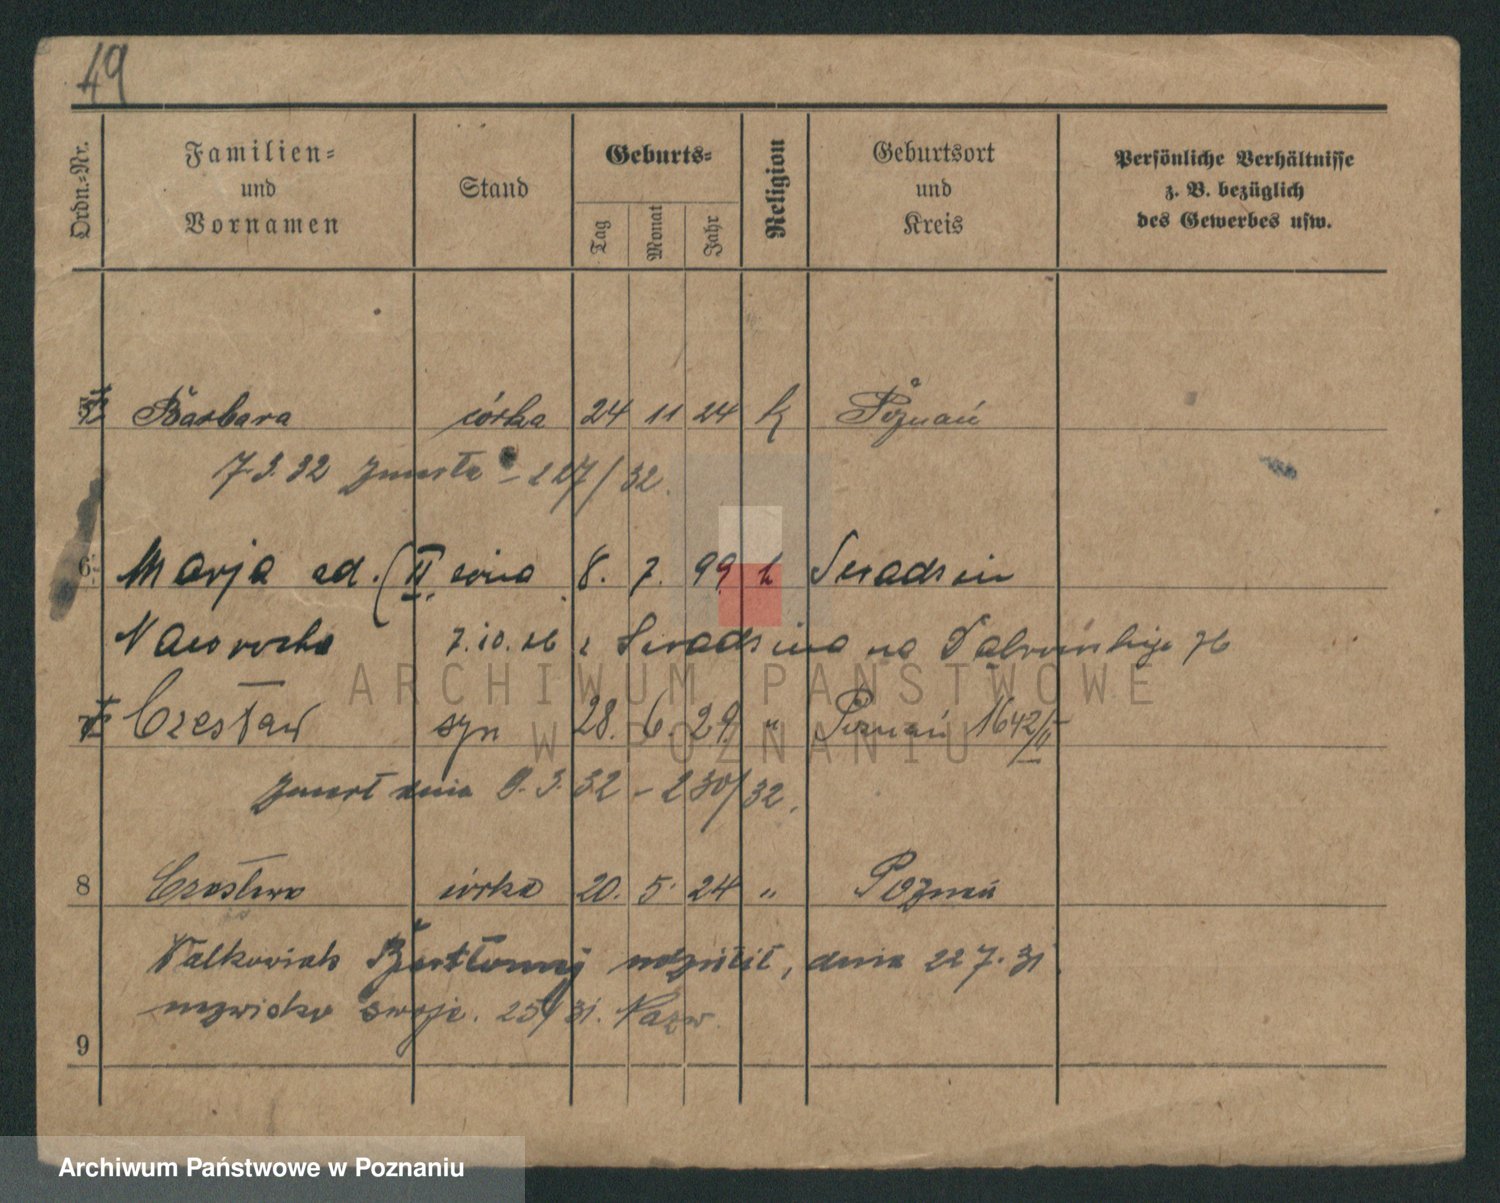 49
Ordn.-Nr.
Familien-
und
Vornamen
Stand
Geburts-
Tag
Monat
Jahr
Religion
Geburtsort
und
Kreis
Persönliche Verhältnisse
z. B. bezüglich
des Gewerbes usw.
5 Barbara córka 24 11 24 k Poznań
7.3.32 zmarła - 227/32.
6 Marja ad. (II córka 8. 7. 99 k
7.10.26 z na
7 Czesław syn 28. 6. 29 " Poznań 1642/II
zmarł dnia 9.3.32 - 230/32.
8 Czesława córka 20. 5. 24 " Poznań
Walkowiak Bartłomiej dnia 22 7. 31
nazwisko swoje. 31. Nazw.
9
ARCHIWUM PAŃSTWOWE
W POZNANIU
Archiwum Państwowe w Poznaniu